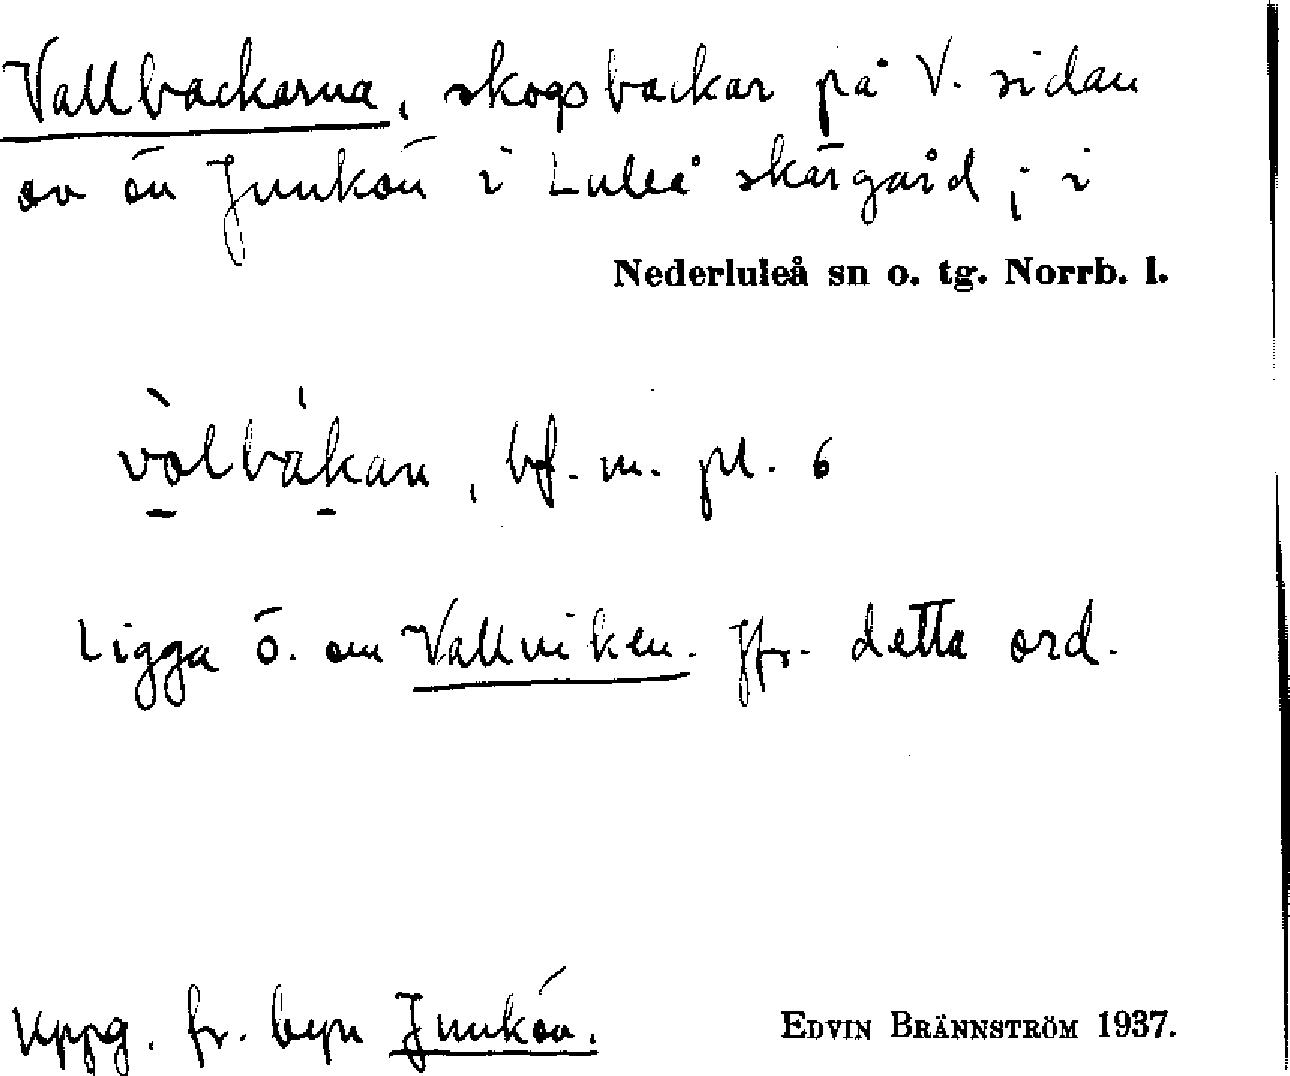 Vallbackarna, skogsbackar på V. sidan
av ön Junkön i Luleå skärgård; i
Nederluleå sn o. tg. Norrb. l.
vòlbákan, bf. m. pl. 6
Ligga ö. om Vallviken. Jfr. detta ord.
Uppg. fr. byn Junkön.
EDVIN BRÄNNSTRÖM 1937.